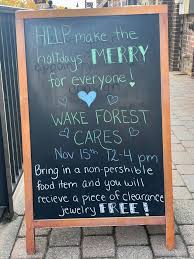 HELP make the
holidays MERRY
for everyone!
WAKE FOREST
CARES
Nov 15th 12-4 pm
Bring in a non-pershible
food item and you will
recieve a piece of clearance
jewelry FREE!